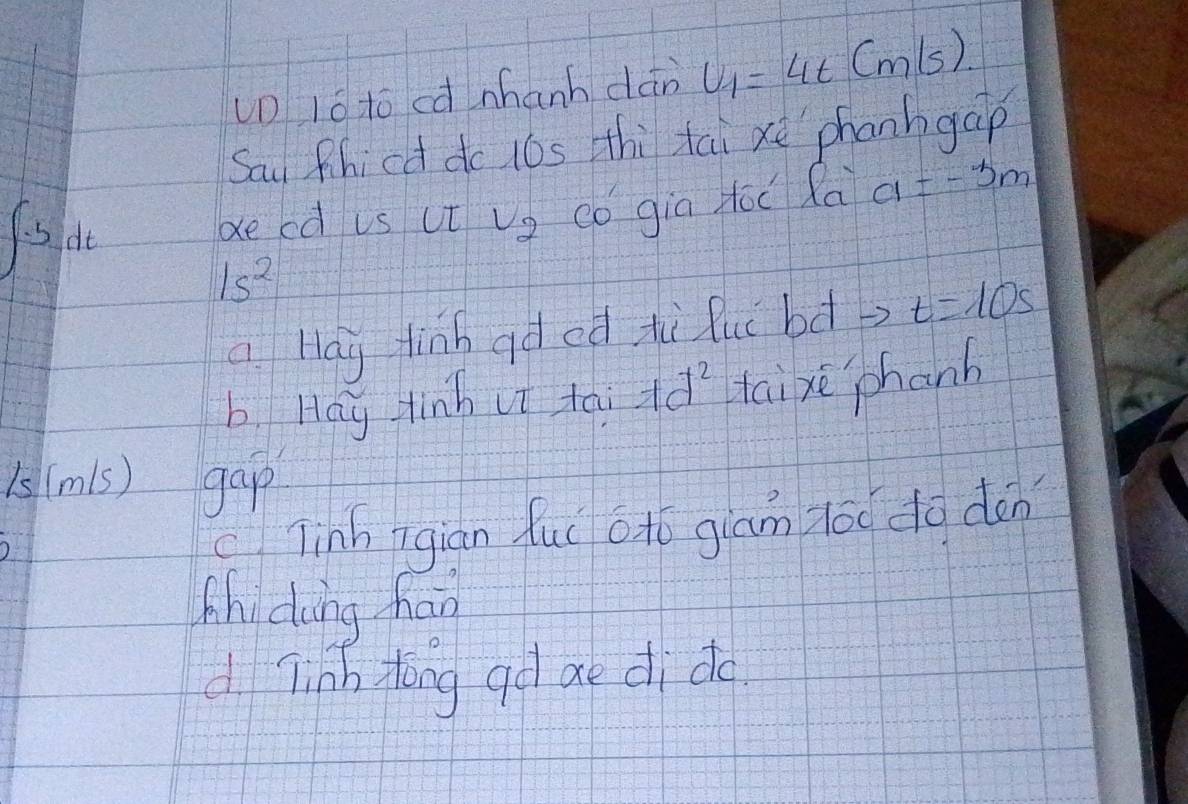 VD 1 ô tô cđ nhanh dần V₁ = 4t (m/s).
Sau khi cđ đc 10s thì tài xế phanh gấp
xe cđ vs VT V₂ có gia tốc là a = -5m
∫-5 dt
/s²
a. Hãy tính qđ cđ từ lúc bđ → t=10s
b. Hãy tính VT tại tđ² tài xế phanh
(m/s) gấp
c. Tính Tgian lúc ô tô giảm tốc độ đến
khi dừng hẳn
d. Tính tổng qđ xe đi đc.